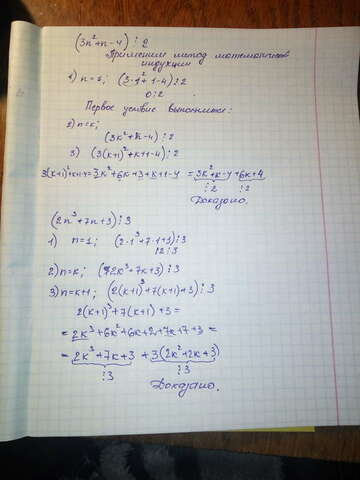 (3n²+n-4) ⋮ 2
Применим метод математической
индукции
1) n=1; (3·1²+1-4) ⋮ 2
0 ⋮ 2
Первое условие выполняется:
2) n=k;
(3k²+k-4) ⋮ 2
3) (3(k+1)²+k+1-4) ⋮ 2
3(k+1)²+k+1-4=3k²+6k+3+k+1-4 = 3k²+k-4+6k+4
⋮2 ⋮2
Доказано.
(2n³+7n+3) ⋮ 3
1) n=1; (2·1³+7·1+3) ⋮ 3
12 ⋮ 3
2) n=k; (2k³+7k+3) ⋮ 3
3) n=k+1; (2(k+1)³+7(k+1)+3) ⋮ 3
2(k+1)³+7(k+1)+3=
=2k³+6k²+6k+2+7k+7+3=
=2k³+7k+3+3(2k²+2k+3)
⋮3 ⋮3
Доказано.